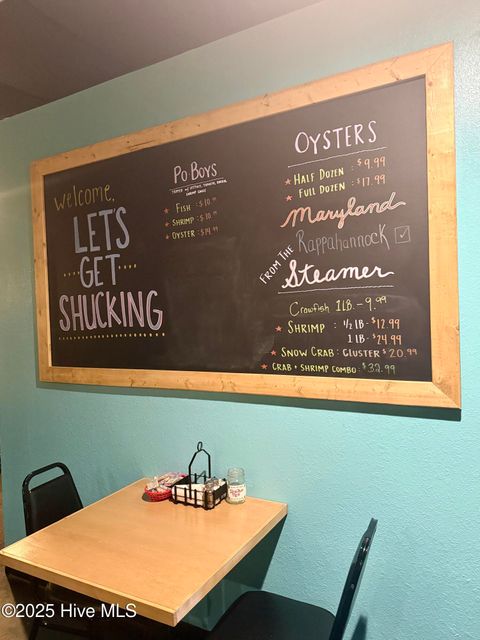 Welcome,
LETS
GET
SHUCKING
Po Boys
FISH : $10
SHRIMP : $10
OYSTER : $14
OYSTERS
HALF DOZEN : $9.99
FULL DOZEN : $17.99
Maryland
Rappahannock
FROM THE
Steamer
Crawfish 1LB. - 9.99
SHRIMP : 1/2 LB - $12.99
1 LB - $24.99
SNOW CRAB : CLUSTER $20.99
CRAB + SHRIMP COMBO : $32.99
©2025 Hive MLS